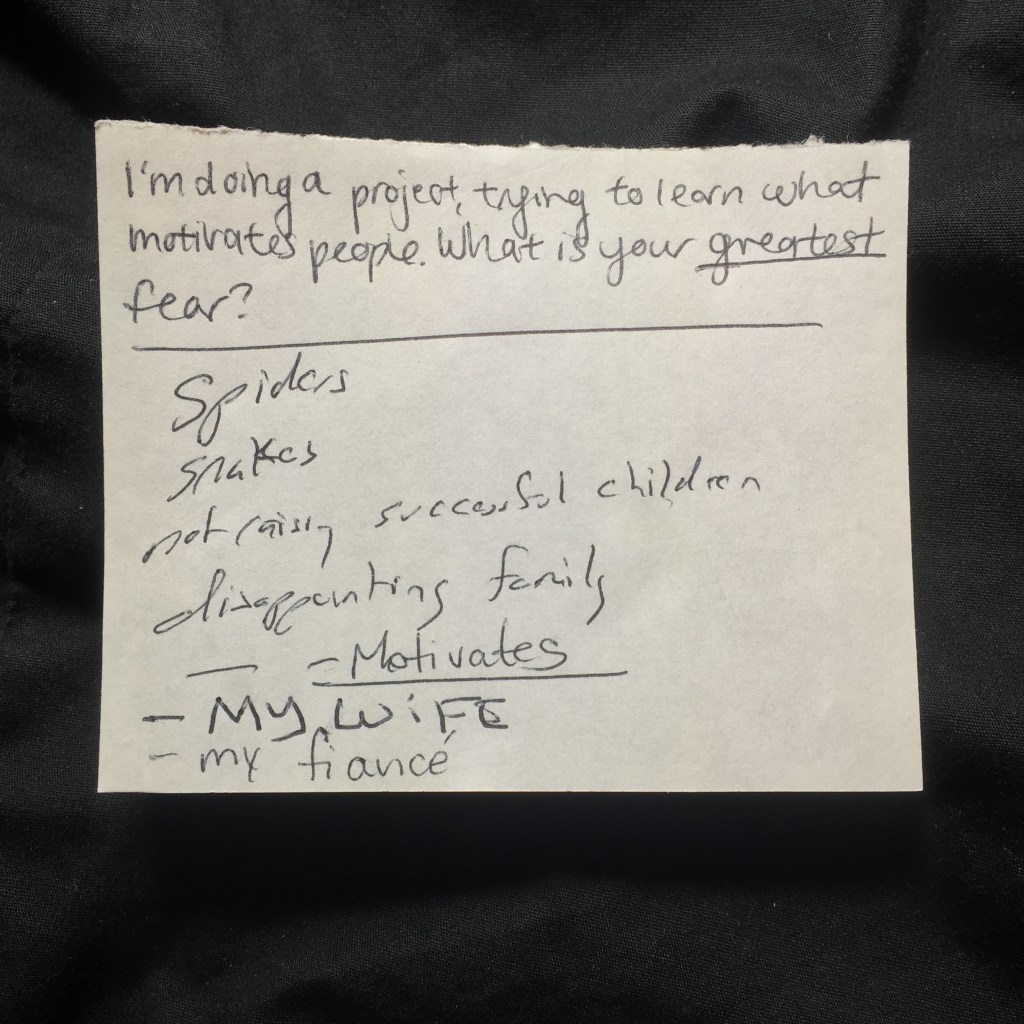 I'm doing a project, trying to learn what
motivates people. What is your greatest
fear?
Spiders
snakes
not raising successful children
disappointing family
— = Motivates
- MY WiFE
- my fiancé